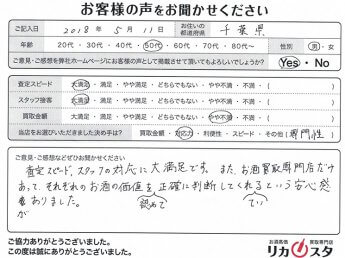 お客様の声をお聞かせください
ご記入日 2018年 5月 11日 お住いの都道府県 千葉県
年齢 20代・30代・40代・50代・60代・70代・80代〜 性別 男・女
ご意見・ご感想を弊社ホームページにお客様の声として掲載させて頂いてもよろしいでしょうか? Yes・No
査定スピード 大満足・満足・どちらでもない・やや不満・不満 ( )
スタッフ接客 大満足・満足・どちらでもない・やや不満・不満 ( )
買取金額 大満足・満足・どちらでもない・やや不満・不満 ( )
当店をお選びいただきました決め手は? 買取金額・対応力・利便性・スピード・その他(専門性)
ご意見・ご感想などぜひお聞かせください
査定スピード、スタッフの対応に大満足です。また、お酒買取専門店だけ
あって、それぞれのお酒の価値を正確に判断してくれるという安心感
ありました。
が
認めて
てい
ご協力ありがとうございました。
この度は誠にありがとうございました。
お酒高価買取専門店
リカスタ